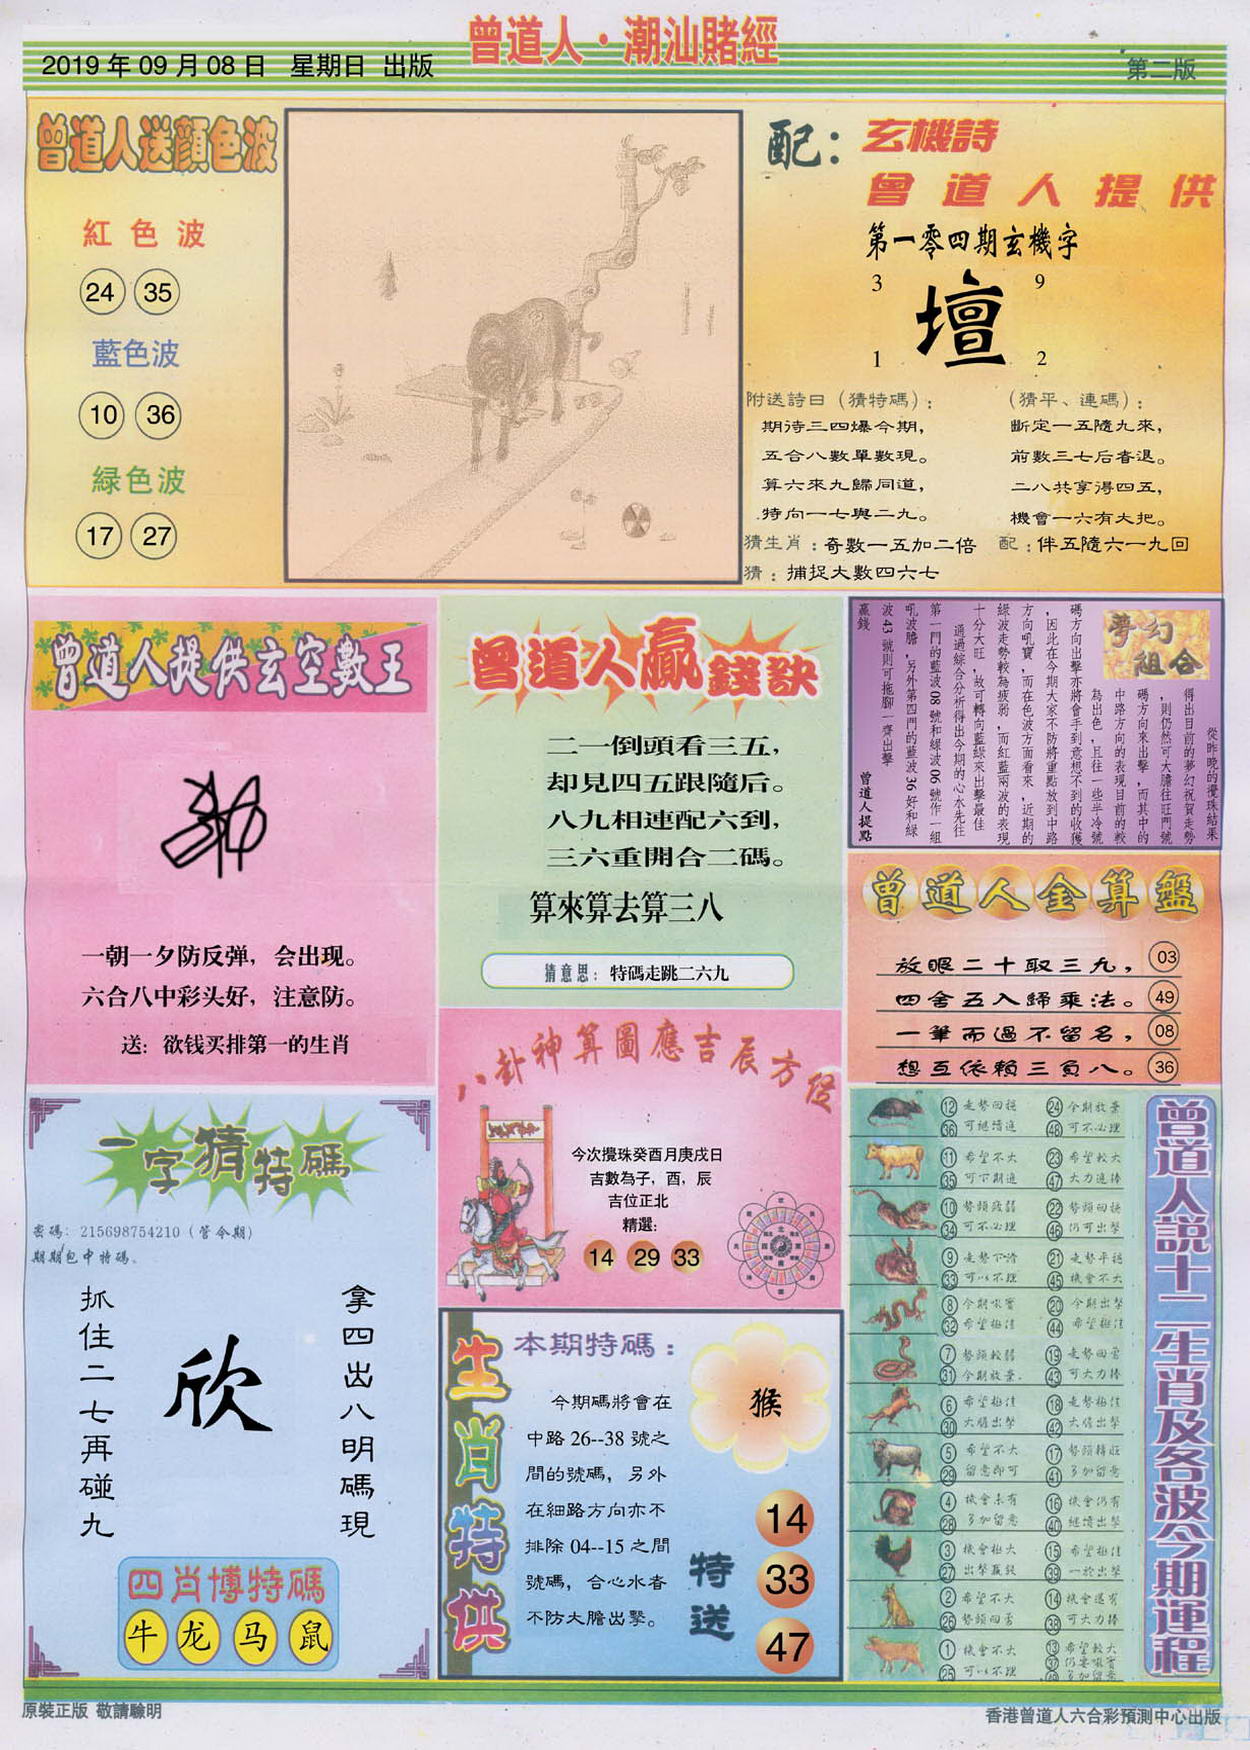 曾道人·潮汕賭經
2019年09月08日 星期日 出版
第二版
曾道人送顏色波
紅色波
24 35
藍色波
10 36
緑色波
17 27
配：玄機詩
曾道人提供
第一零四期玄機字
3 9
壇
1 2
附送詩曰（猜特碼）：
期待三四爆今期，
五合八數單數現。
算六來九歸同道，
特向一七與二九。
（猜平、連碼）：
斷定一五隨九來，
前數三七后者退。
二八共享得四五，
機會一六有大把。
猜生肖：奇數一五加二倍
配：伴五隨六一九回
猜：捕捉大數四六七
曾道人提供玄空數王
一朝一夕防反弹，会出现。
六合八中彩头好，注意防。
送：欲钱买排第一的生肖
曾道人贏錢訣
二一倒頭看三五，
却見四五跟隨后。
八九相連配六到，
三六重開合二碼。
算來算去算三八
猜意思：特碼走跳二六九
夢幻
組合
從昨晚的攪珠結果
得出目前的夢幻祝賀走勢
，則仍然可大膽往旺門號
碼方向來出擊，而其中的
中路方向的表現目前的較
為出色，且往一些半冷號
碼方向出擊亦將會手到意想不到的收獲
，因此在今期大家不防將重點放到中路
方向吼寶，而在色波方面看來，近期的
綠波走勢較為疲弱，而紅藍兩波的表現
十分大旺，故可轉向藍綠來出擊最佳
通過綜合分析得出今期的心水先往
第一門的藍波08號和綠波06號作一組
吼波膽，另外第四門的藍波36好和綠
波43號則可拖腳一齊出擊
贏錢
曾道人提點
曾道人金算盤
放眼二十取三九， 03
四舍五入歸乘法。 49
一筆而過不留名， 08
想互依賴三負八。 36
八卦神算圖應吉辰方位
今次攪珠癸酉月庚戌日
吉數為子，酉，辰
吉位正北
精選：
14 29 33
一字猜特碼
密碼：215698754210（管令期）
期期包中特碼。
拿四出八明碼現
欣
抓住二七再碰九
四肖博特碼
牛 龙 马 鼠
生肖特供
本期特碼：
今期碼將會在
中路26--38號之
間的號碼，另外
在細路方向亦不
排除04--15之間
號碼，合心水者
不防大膽出擊。
猴
特送
14
33
47
曾道人説十二生肖及各波今期運程
12 走勢回穩 24 今期放棄
36 可繼續進 48 可不必理
11 希望不大 23 希望較大
35 可下期進 47 大力進捧
10 勢頭疲弱 22 勢頭回穩
34 可不必理 46 仍可出擊
9 走勢下滑 21 走勢平穩
33 可以不理 45 機會不大
8 今期吼實 20 今期出擊
32 希望極佳 44 希望極佳
7 勢頭較弱 19 走勢回雷
31 今期放棄 43 可大力捧
6 希望極佳 18 走勢極佳
30 大膽出擊 42 大膽出擊
5 希望不大 17 勢頭轉旺
29 留意即可 41 多加留意
4 機會未有 16 機會仍有
28 多加留意 40 繼續出擊
3 機會極大 15 希望極佳
27 出擊贏錢 39 一於出擊
2 希望不大 14 機會還有
26 勢頭回勇 38 可大力捧
1 機會不大 13 希望較大
25 可以不理 37 仍要吼實
49 多加留意
原裝正版 敬請驗明
香港曾道人六合彩預測中心出版